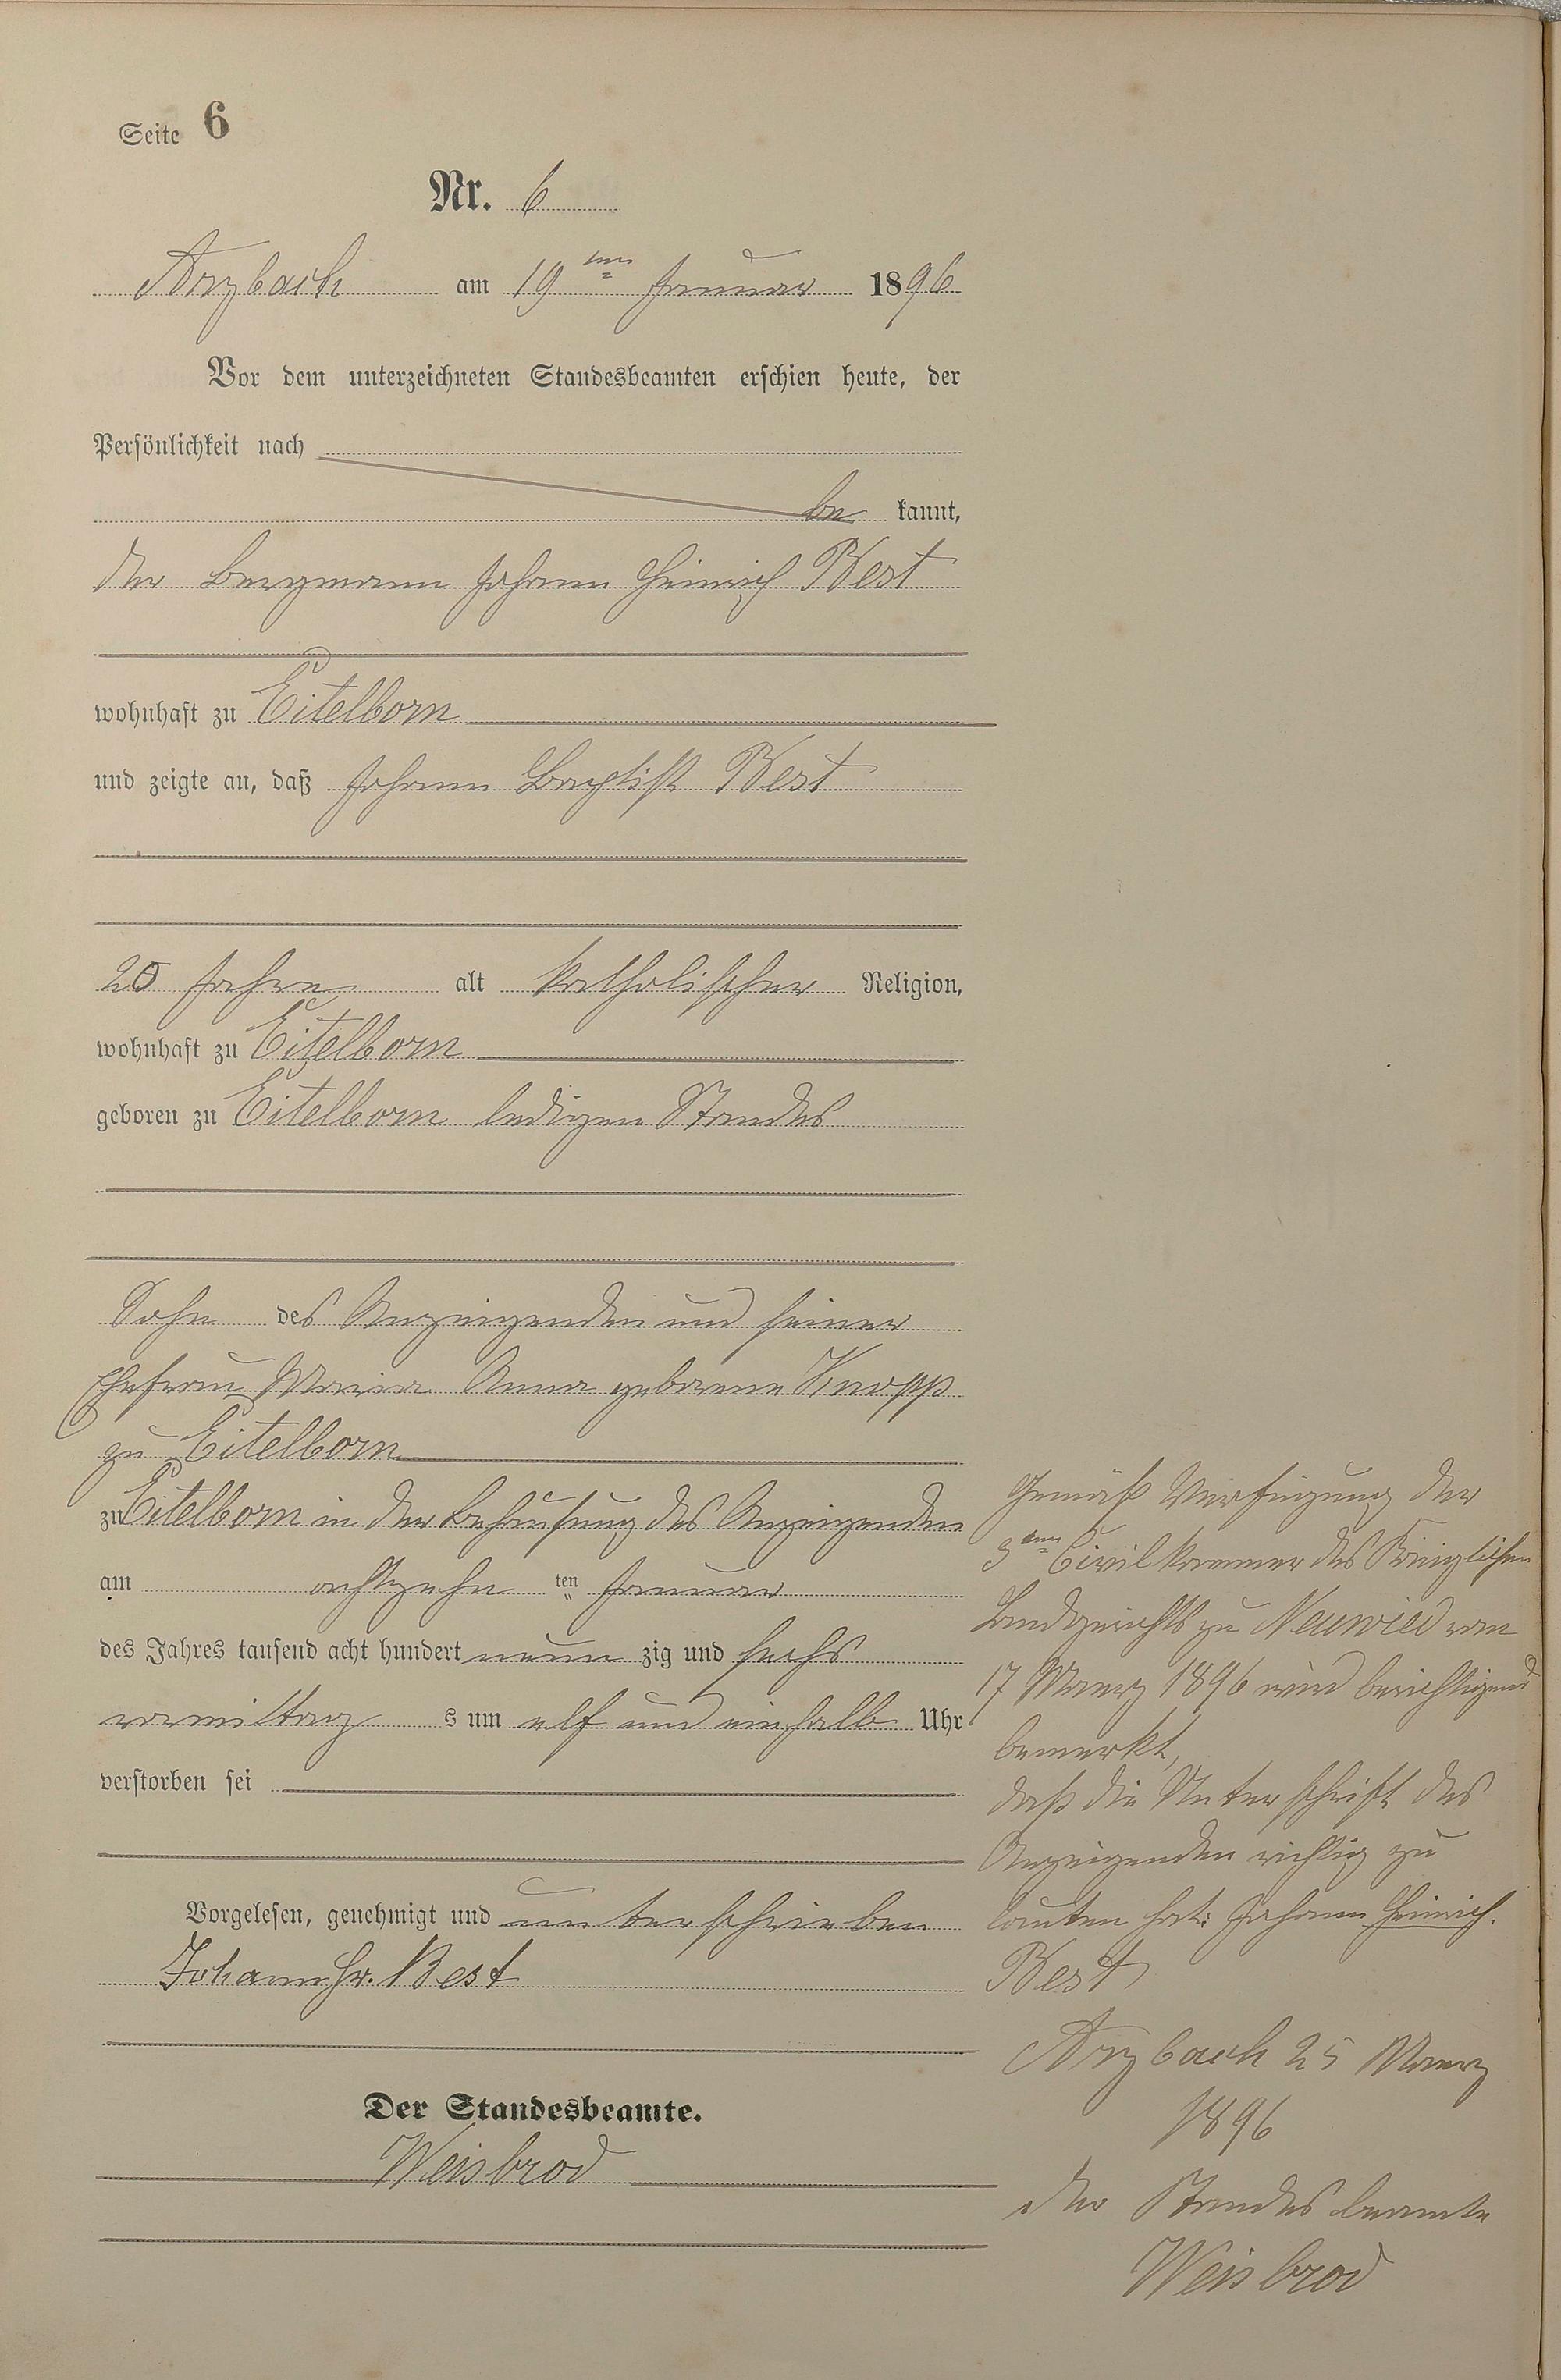 Seite 6
Nr. 6
Arzbach am 19ten Januar 1896
Vor dem unterzeichneten Standesbeamten erschien heute, der
Persönlichkeit nach
be kannt,
der Bergmann Johann Heinrich Best
wohnhaft zu Eitelborn
und zeigte an, daß Johann Baptist Best
20 Jahre alt katholischer Religion,
wohnhaft zu Eitelborn
geboren zu Eitelborn ledigen Standes
Sohn des Anzeigenden und seiner
Ehefrau Maria Anna geborene Knopp
zu Eitelborn
zu Eitelborn in der Behausung des Anzeigenden
am achtzehn ten Januar
des Jahres tausend acht hundert neun zig und sechs
vormittag s um elf und einhalb Uhr
verstorben sei
Vorgelesen, genehmigt und unterschrieben
Johann Hr. Best
Der Standesbeamte.
Weisbrod
Gemäß Verfügung der
3ten Civilkammer des Königlichen
Landgerichts zu Neuwied vom
17 Maerz 1896 wird berichtigend
bemerkt,
daß die Unterschrift des
Anzeigenden richtig zu
lauten hat: Johann Heinrich.
Best
Arzbach 25 Maerz
1896
Der Standesbeamte
Weisbrod